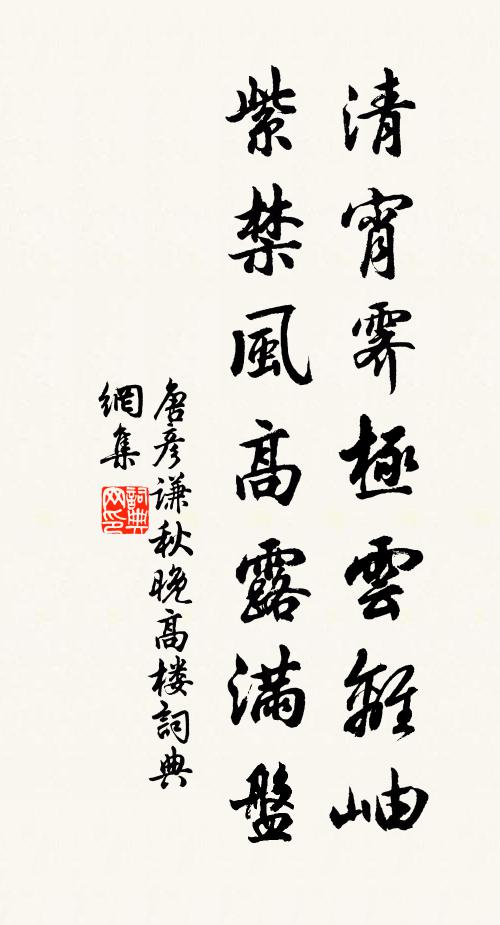 清宵霽極雲離岫
紫禁風高露滿盤
唐彥谦秋晚高楼詞典
網集
詞典网印